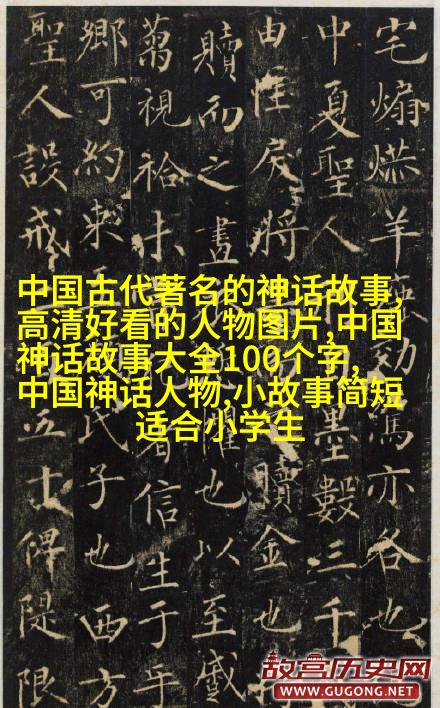 宅煽羊亦各也
中夏聖人墨數三千
由性戾將贖金也
贖而之懼也以至戚
視者信生于
鄉可約束氏子也西方
聖人設戒五俾隄限
中国古代著名的神话故事,
高清好看的人物图片,中国
神话故事大全100个字,
中国神话人物,小故事简短
适合小学生
故宫历史网
WWW.GUGONG.NET